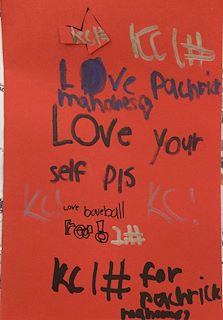 KC1#
KC1#
LOve pachrick
mahomes
LOVe your
self pls
KC!
Love baseball
KC!
1#
KC1# for
pachrick
mahomes